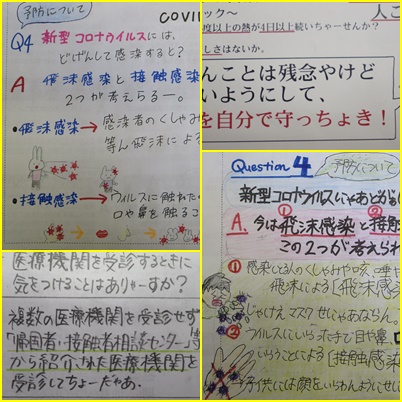 予防について
COVI
Q4 新型コロナウイルスには、
どげんして感染すると?
A 飛沫感染と接触感染
2つが考えらるー。
・飛沫感染→感染者のくしゃみ
等ん飛沫による
・接触感染→ウイルスに触れた
口や鼻を触るこ
ック〜
人こ
度以上の熱が4日以上続いちゃーせんか?
しさはないか。
んことは残念やけど
いようにして、
を自分で守っちょき!
医療機関を受診するときに
気をつけることはありゃーすか?
複数の医療機関を受診せず
「帰国者・接触者相談センター」等
から紹介された医療機関を
受診してちょーだゃあ。
Question 4 予防について
新型コロナウイルスにゃあ
A. 今は①飛沫感染と②接触
この2つが考えられ
① 感染しとる人のくしゃみや咳、唾
飛沫による[飛沫感
じゃけえマスクせにゃあならん。
② ウイルスにいろうた手で目や鼻、口
いろうことによる[接触感
子供には顔をいらわんようにせに